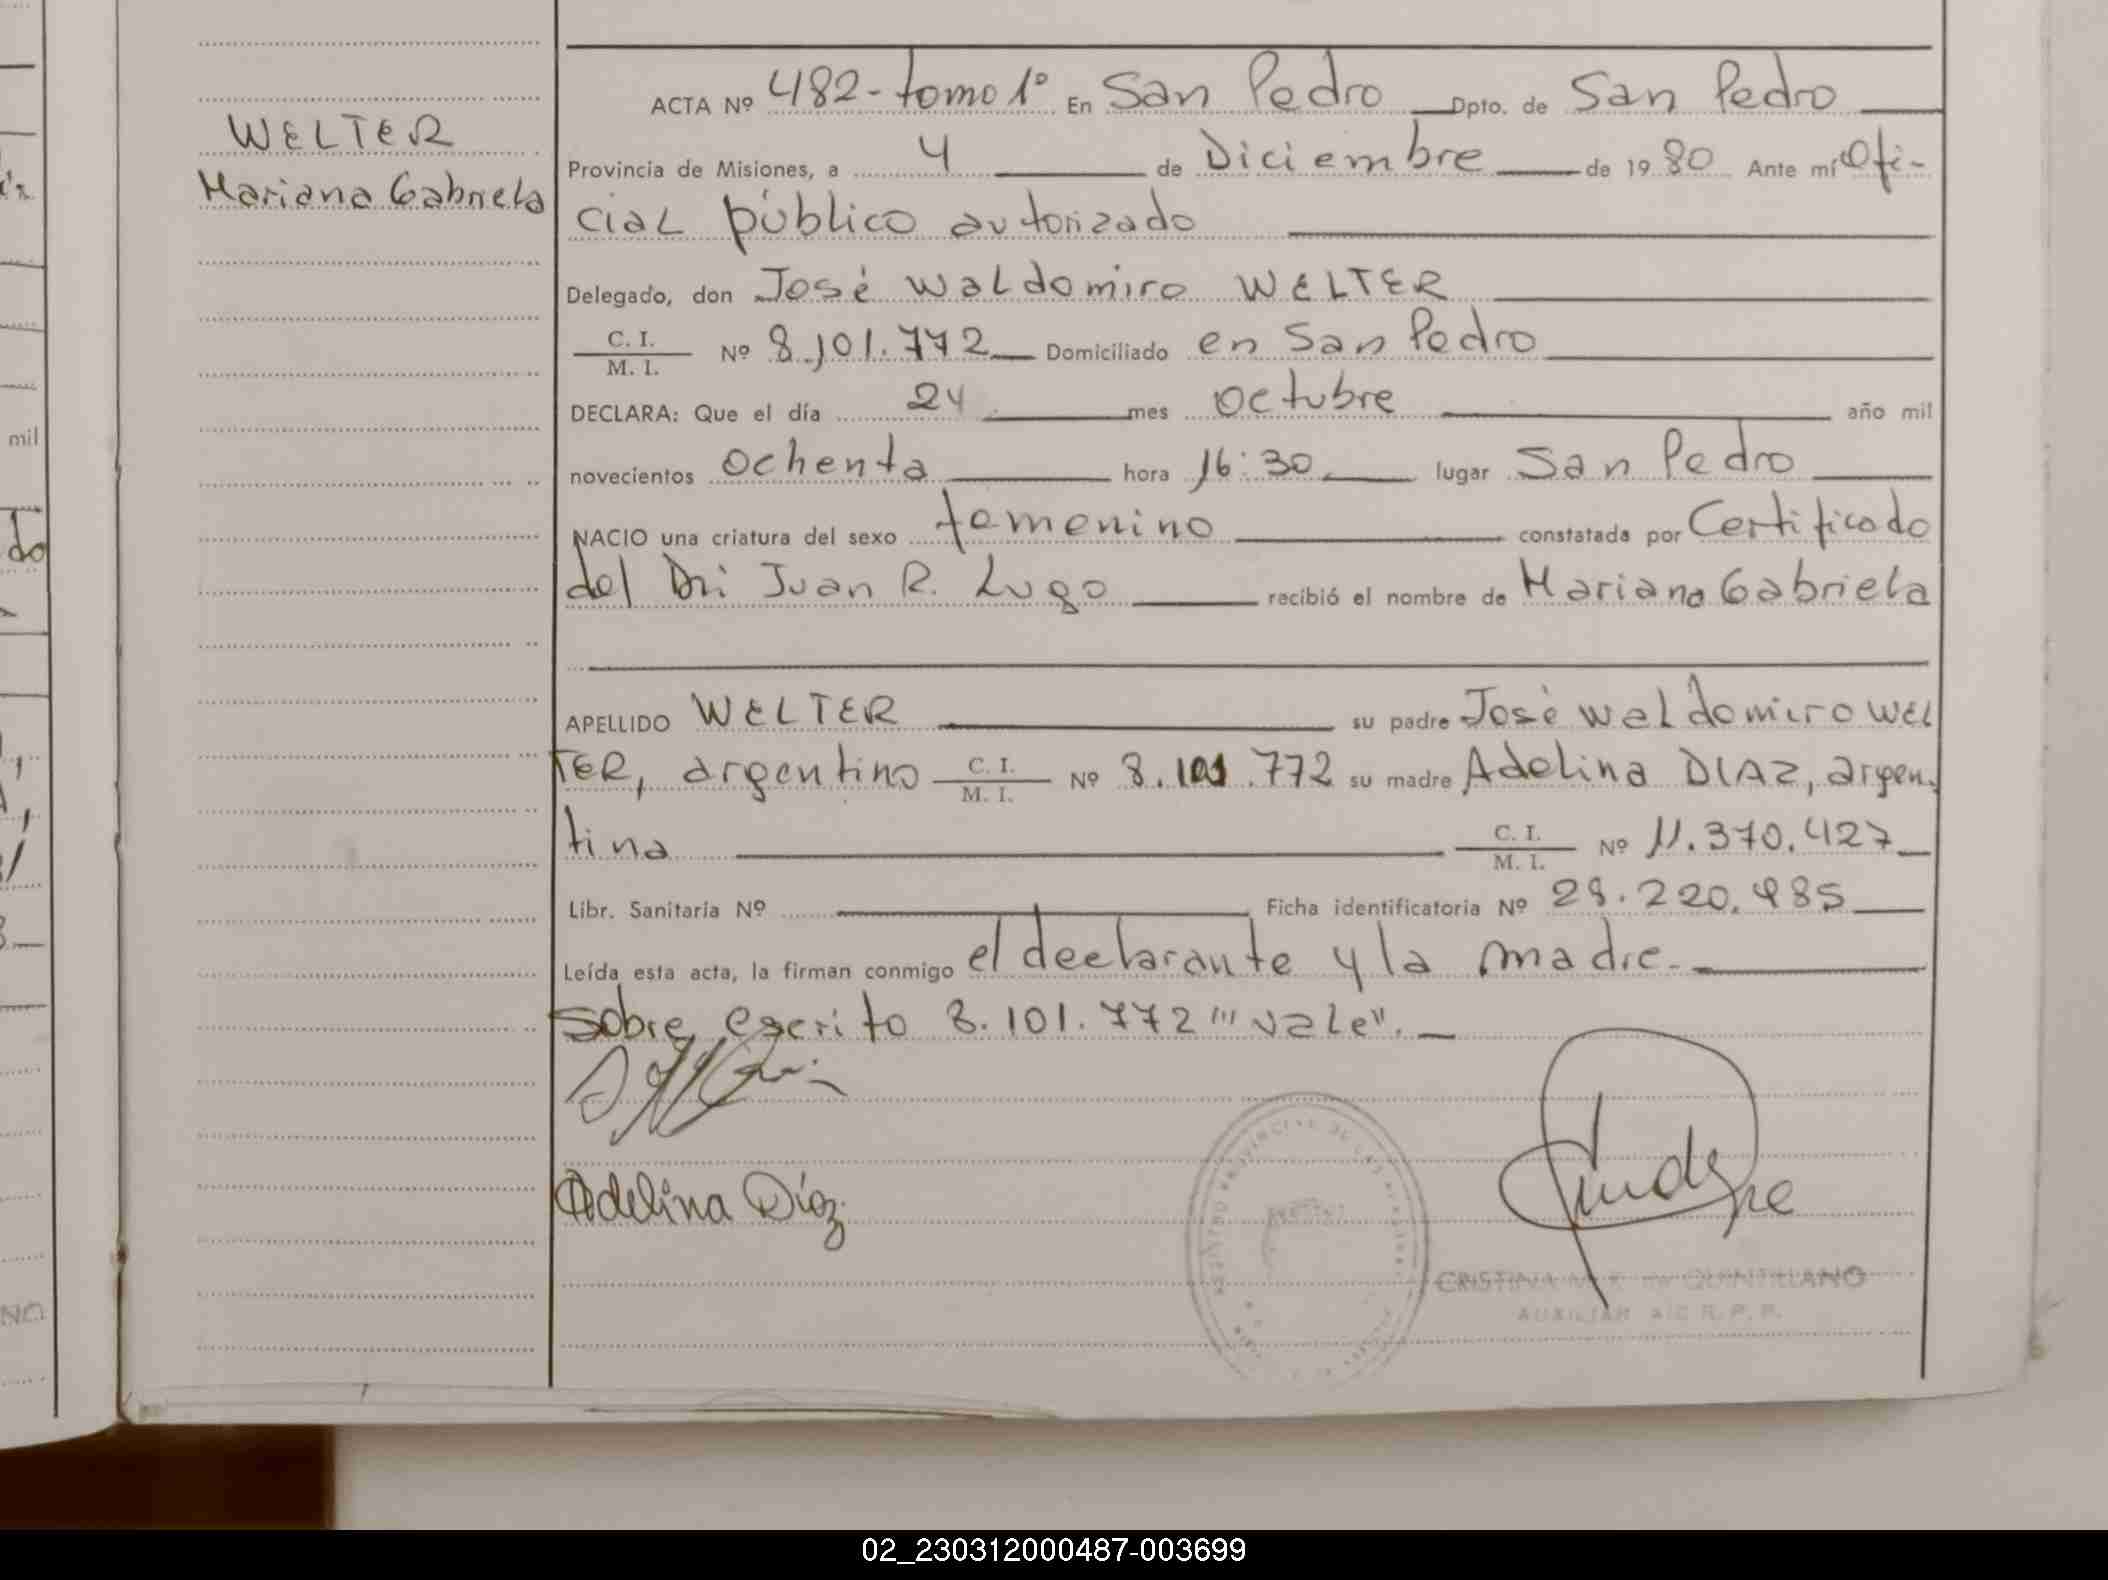 WELTER
Mariana Gabriela
ACTA Nº 482- tomo 1º En San Pedro Dpto. de San Pedro
Provincia de Misiones, a 4 de Diciembre de 19 80 Ante mí Ofi-
cial público autorizado
Delegado, don José Waldomiro WELTER
C. I.
M. I. Nº 8.101.772 Domiciliado en San Pedro
DECLARA: Que el día 24 mes Octubre año mil
novecientos Ochenta hora 16:30 lugar San Pedro
NACIO una criatura del sexo femenino constatada por Certificado
del Dr: Juan R. Lugo recibió el nombre de Mariana Gabriela
APELLIDO WELTER su padre José Waldomiro WEL
TER, argentino C. I. M. I. Nº 8.101.772 su madre Adelina DIAZ, argen-
tina C. I. M. I. Nº 11.370.427
Libr. Sanitaria Nº Ficha identificatoria Nº 28.220.485
Leída esta acta, la firman conmigo el declarante y la madre.
Sobre escrito 8.101.772 "vale".
Adelina Díaz
CRISTINA DE QUINTILLANO
AUXILIAR R. P. P.
mil
do
02_230312000487-003699